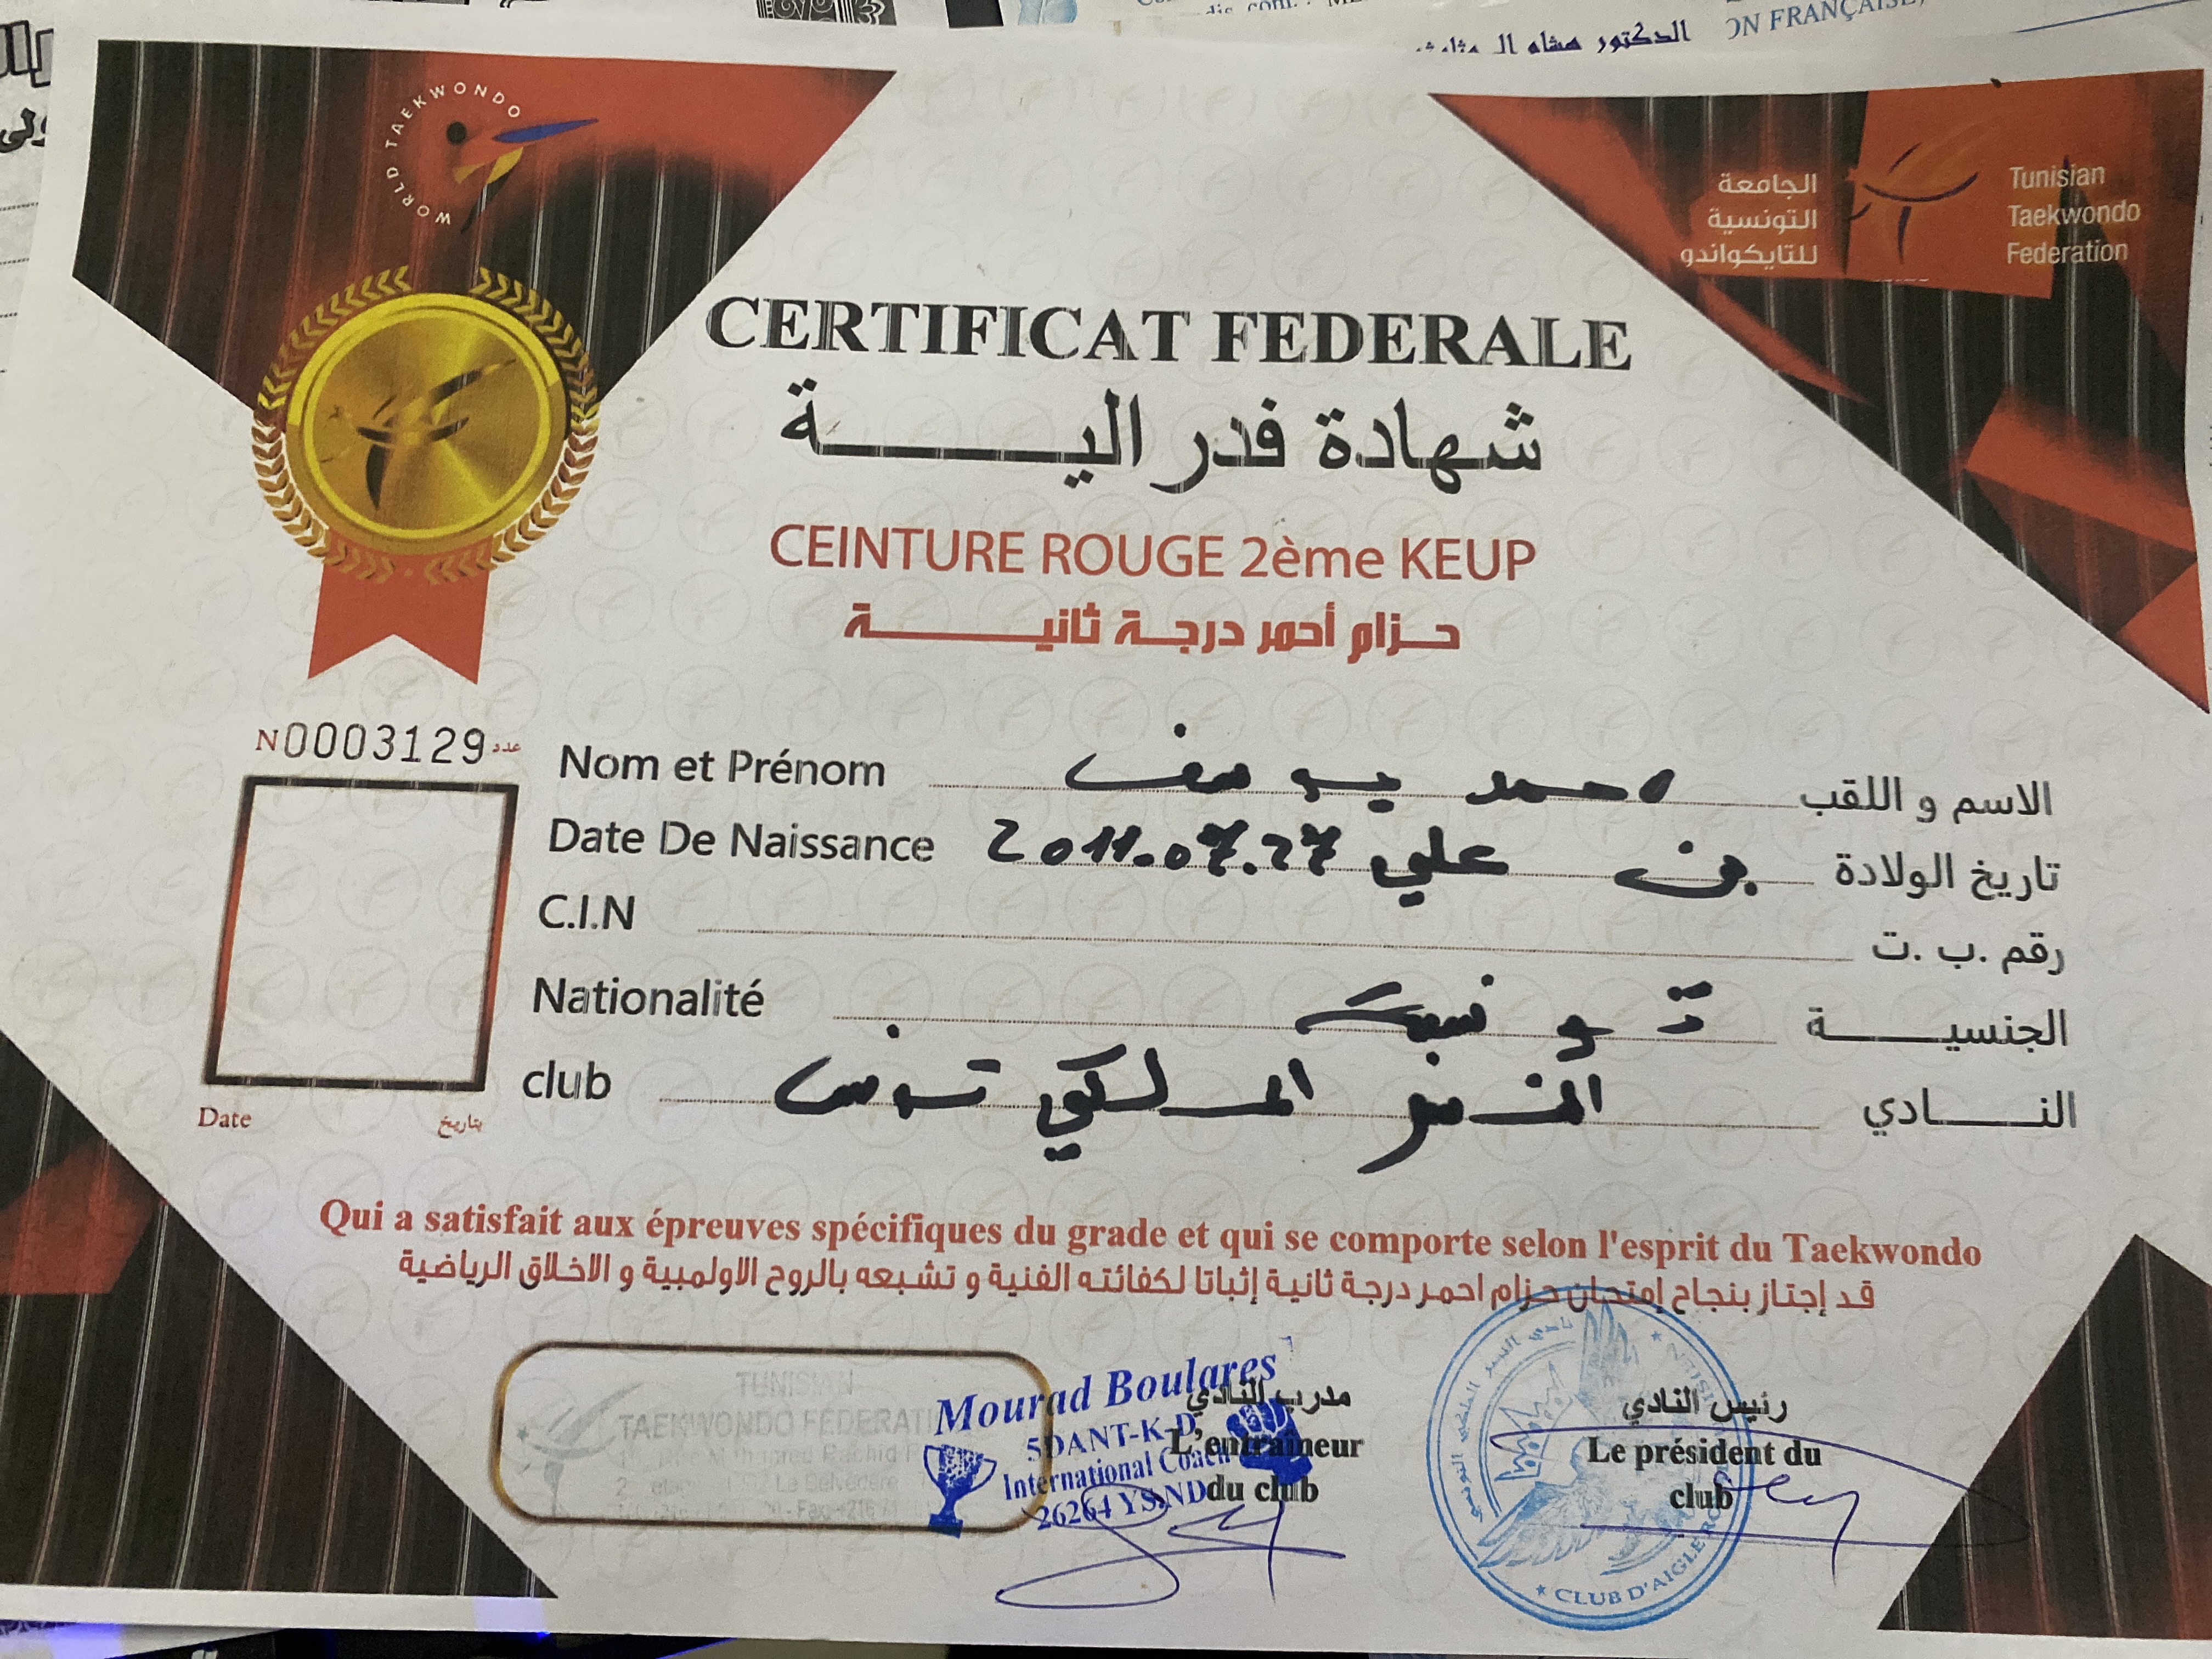 ON FRANÇAISE,
الدكتور هشام
WORLD TAEKWONDO
الجامعة
التونسية
للتايكواندو
Tunisian
Taekwondo
Federation
CERTIFICAT FEDERALE
شهادة فدراليـــــــة
CEINTURE ROUGE 2ème KEUP
حـزام أحمر درجـة ثانيـــــــة
N0003129 عدد
Nom et Prénom احمد يوسف الاسم و اللقب
Date De Naissance بن علي 2011.07.27 تاريخ الولادة
C.I.N رقم .ب .ت
Nationalité تونسية الجنسيــــــة
club النسر الملكي تونس النـــــادي
Date بتاريخ
Qui a satisfait aux épreuves spécifiques du grade et qui se comporte selon l'esprit du Taekwondo
قد إجتاز بنجاح إمتحان حزام احمر درجة ثانية إثباتا لكفائته الفنية و تشبعه بالروح الاولمبية و الاخلاق الرياضية
TUNISIAN
TAEKWONDO FEDERATI
Le Belvédère
Mourad Boulares
5DANT-K-D
International Coach
26264 YS.ND
مدرب النادي
L'entraîneur
du club
رئيس النادي
Le président du
club
CLUB D'AIGLE RO